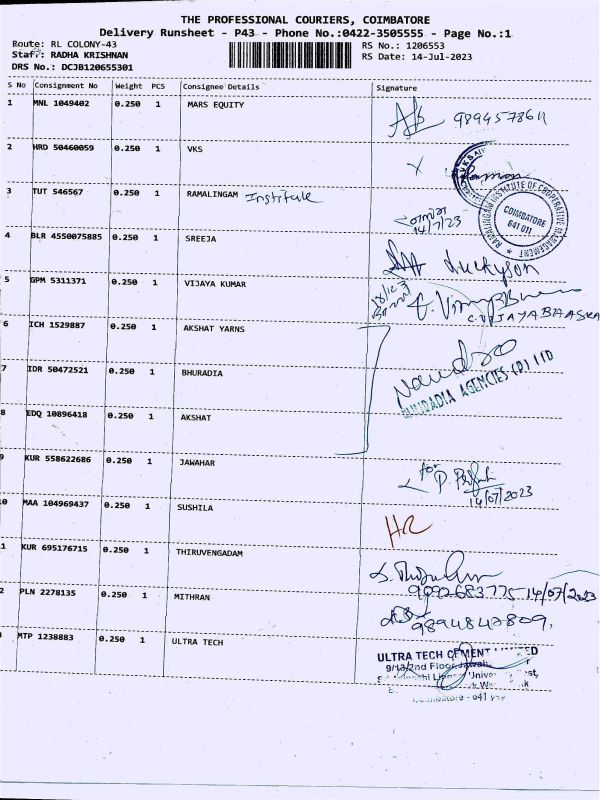 THE PROFESSIONAL COURIERS, COIMBATORE
Delivery Runsheet - P43 - Phone No.:0422-3505555 - Page No.:1
Route: RL COLONY-43
RS No.: 1206553
Staff: RADHA KRISHNAN
RS Date: 14-Jul-2023
DRS No.: DCJB120655301
S No Consignment No Weight PCS Consignee Details Signature
1 MNL 1049402 0.250 1 MARS EQUITY
9894578611
2 HRD 50460059 0.250 1 VKS
3 TUT 546567 0.250 1 RAMALINGAM Institute
14/7/23
RAMALINGAM INSTITUTE OF CO-OPERATIVE MANAGEMENT
COIMBATORE
641 011
4 BLR 4550075885 0.250 1 SREEJA
Luckyson
5 GPM 5311371 0.250 1 VIJAYA KUMAR
6 ICH 1529887 0.250 1 AKSHAT YARNS
7 IDR 50472521 0.250 1 BHURADIA
BHURADIA AGENCIES (P) LTD
8 EDQ 10896418 0.250 1 AKSHAT
9 KUR 558622686 0.250 1 JAWAHAR
for
14/07/2023
0 MAA 104969437 0.250 1 SUSHILA
1 KUR 695176715 0.250 1 THIRUVENGADAM
9092683775 14/07/2023
2 PLN 2278135 0.250 1 MITHRAN
9894847809.
MTP 1238883 0.250 1 ULTRA TECH
ULTRA TECH CEMENT
9/1a/2nd Floor